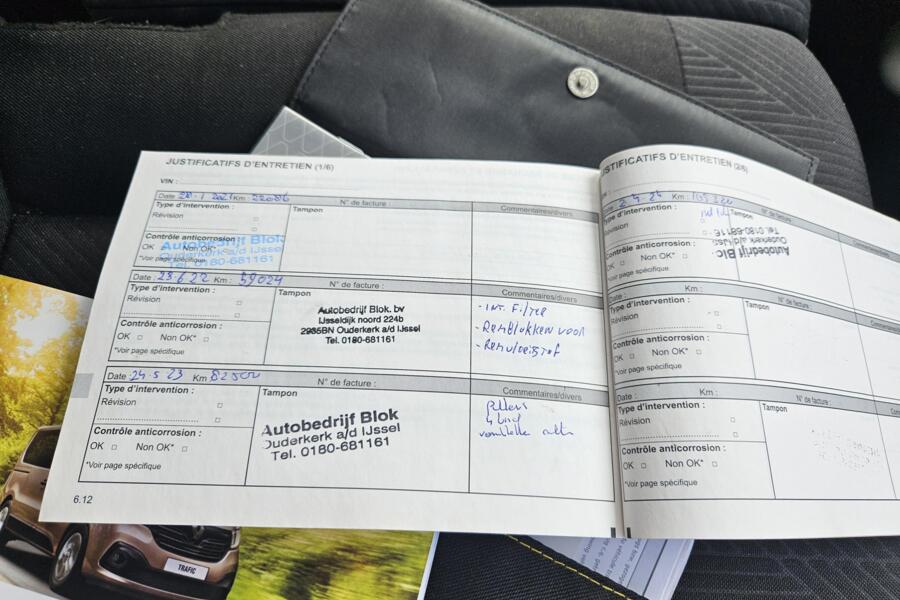 JUSTIFICATIFS D'ENTRETIEN (1/6)
VIN :
Date : Km :
N° de facture :
Commentaires/divers
Type d'intervention :
Révision
Tampon
Contrôle anticorrosion :
OK Non OK*
*Voir page spécifique
Autobedrijf Blok
Ouderkerk a/d IJssel
Tel. 0180-681161
Date : 23.6.22 Km : 59024
N° de facture :
Commentaires/divers
Type d'intervention :
Révision
Tampon
Contrôle anticorrosion :
OK Non OK*
*Voir page spécifique
Autobedrijf Blok. bv
IJsseldijk noord 224b
2935BN Ouderkerk a/d IJssel
Tel. 0180-681161
- Int. Filter
- Remblokken voor
- Remvloeistof
Date : 24.5 23 Km 82500
N° de facture :
Commentaires/divers
Type d'intervention :
Révision
Tampon
Contrôle anticorrosion :
OK Non OK*
*Voir page spécifique
Autobedrijf Blok
Ouderkerk a/d IJssel
Tel. 0180-681161
6.12
JUSTIFICATIFS D'ENTRETIEN (2/6)
Km :
N° de facture :
Type d'intervention :
Révision
Tampon
Contrôle anticorrosion :
OK Non OK*
*Voir page spécifique
Autobedrijf Blok
Ouderkerk a/d IJssel
Tel. 0180-68116
Date : Km :
N° de facture :
Type d'intervention :
Révision
Tampon
Contrôle anticorrosion :
OK Non OK*
*Voir page spécifique
Date : Km :
N° de facture :
Type d'intervention :
Révision
Tampon
Contrôle anticorrosion :
OK Non OK*
*Voir page spécifique
TRAFIC